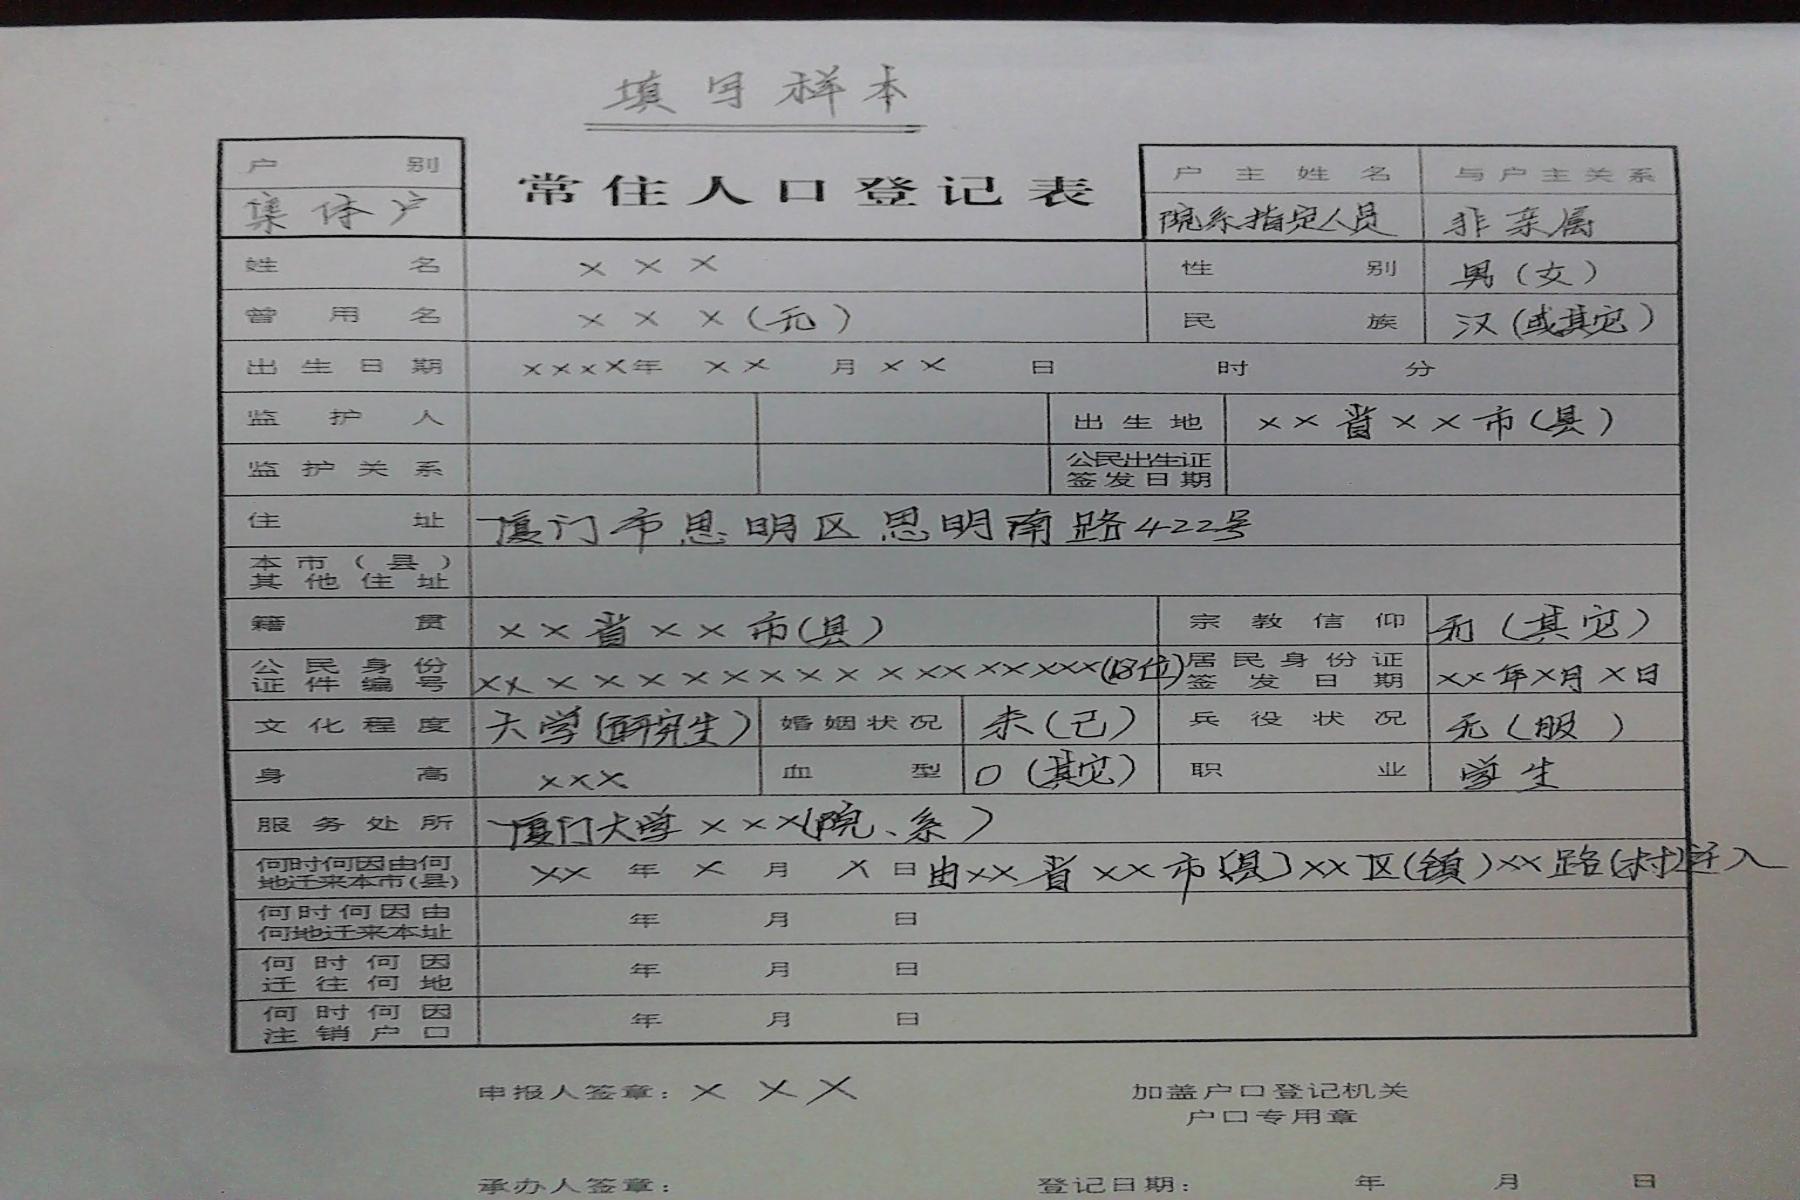 填写样本
户别
常住人口登记表
户主姓名 与户主关系
集体户
院系指定人员 非亲属
姓名 ××× 性别 男(女)
曾用名 ×××(无) 民族 汉(或其它)
出生日期 ××××年 ××月××日 时 分
监护人 出生地 ××省××市(县)
监护关系 公民出生证
签发日期
住址 厦门市思明区思明南路422号
本市(县)
其他住址
籍贯 ××省××市(县) 宗教信仰 无(其它)
公民身份 居民身份证
证件编号 ××××××××××××××××××(18位) 签发日期 ××年×月×日
文化程度 大学(研究生) 婚姻状况 未(已) 兵役状况 无(服)
身高 ××× 血型 O(其它) 职业 学生
服务处所 厦门大学×××(院、系)
何时何因由何
地迁来本市(县) ××年×月×日由××省××市(县)××区(镇)××路(村)迁入
何时何因由
何地迁来本址 年 月 日
何时何因
迁往何地 年 月 日
何时何因
注销户口 年 月 日
申报人签章:××× 加盖户口登记机关
户口专用章
承办人签章: 登记日期: 年 月 日